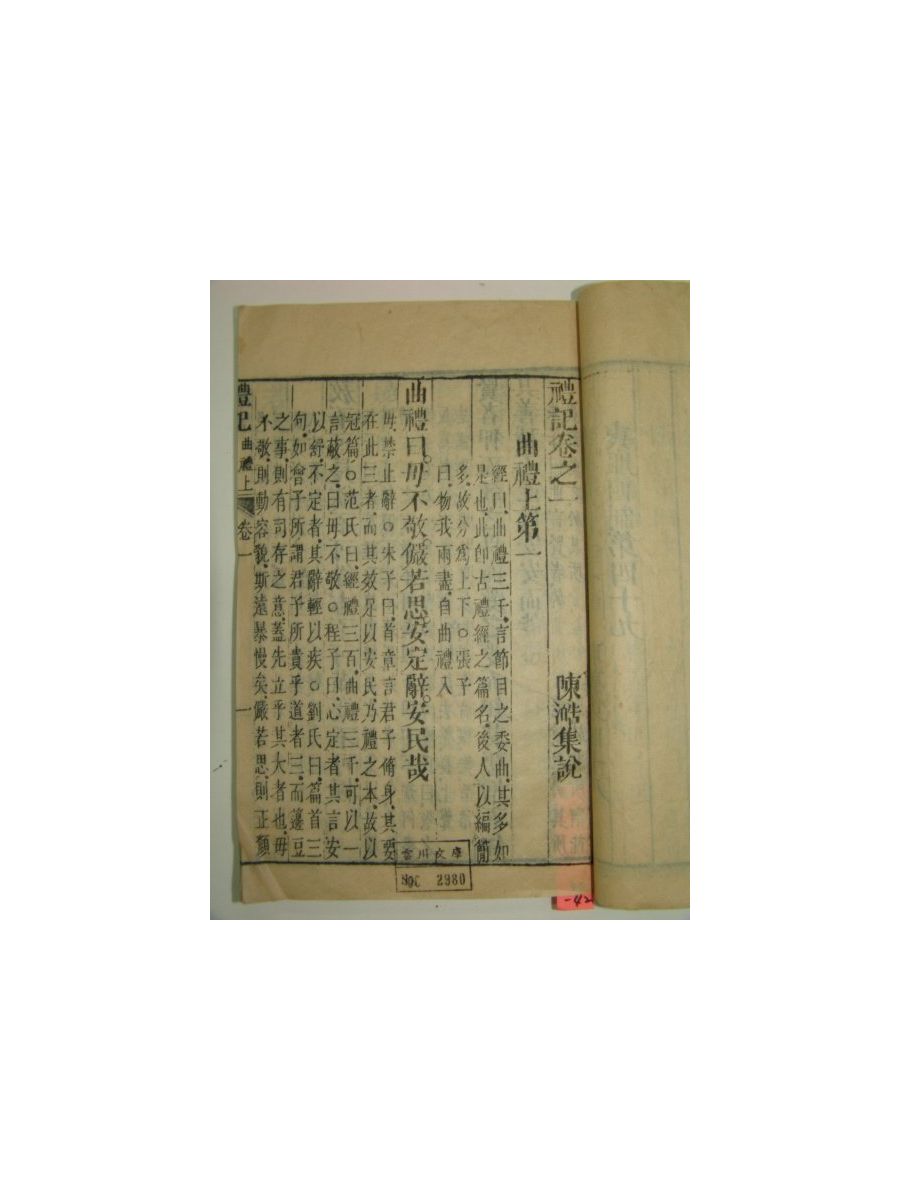 禮記卷之一
陳澔集說
曲禮上第一
經曰曲禮三千言節目之委曲其多如
是也此卽古禮經之篇名後人以編簡
多故分爲上下○張子
曰物我兩盡自曲禮入
曲禮曰毋不敬儼若思安定辭安民哉
毋禁止辭○朱子曰首章言君子脩身其要
在此三者而其效足以安民乃禮之本故以
冠篇○范氏曰經禮三百曲禮三千可以一
言蔽之曰毋不敬○程子曰心定者其言安
以舒不定者其辭輕以疾○劉氏曰篇首三
句如曾子所謂君子所貴乎道者三而籩豆
之事則有司存之意蓋先立乎其大者也毋
不敬則動容貌斯遠暴慢矣儼若思則正顏
禮記 曲禮上 卷一 一
雲川文庫
NO. 2980
-42